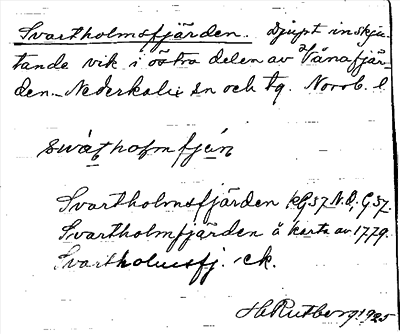 Svartholmsfjärden. Djupt inskju-
tande vik i östra delen av Vånafjär-
den. Nederkalix sn och tg. Norrb. l.
svàṭhoḷmfjä́ṇ
Svartholmsfjärden KG 37 N.D. G 37.
Svartholmfjärden å karta av 1779.
Svartholmsfj. ck.
H. Rutberg 1925